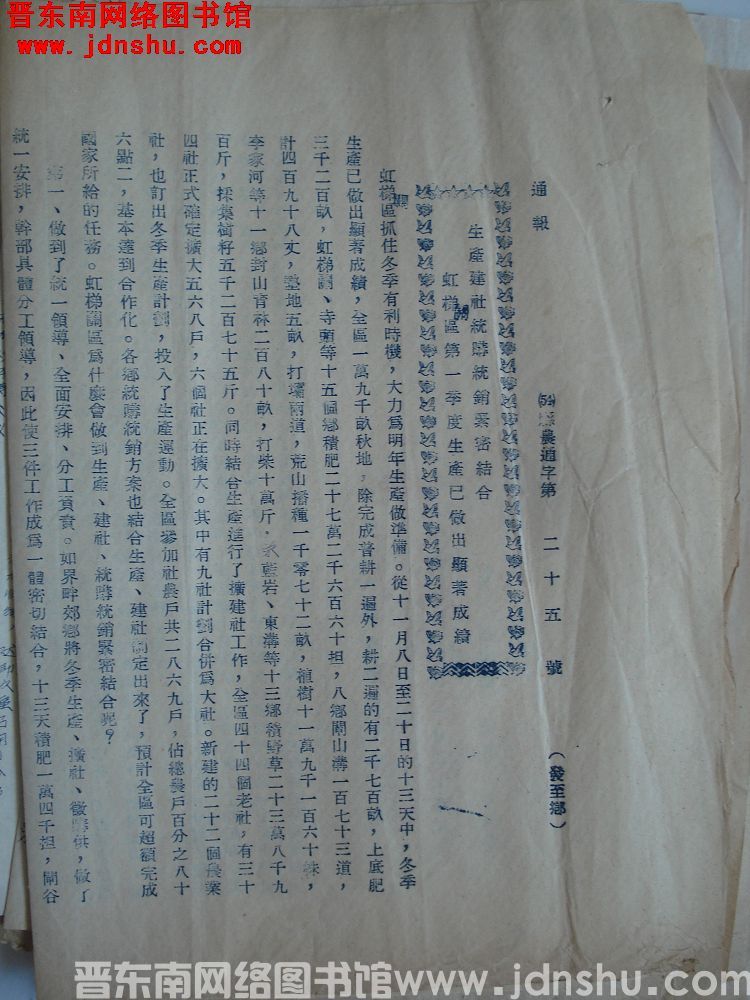 晋东南网络图书馆
www.jdnshu.com
通報
(54)縣農通字第 二十五 號
(發至鄉)
生產建社統購統銷緊密結合
虹梯關區第一季度生產已做出顯著成績
虹梯關區抓住冬季有利時機,大力為明年生產做準備。從十一月八日至二十日的十三天中,冬季
生產已做出顯著成績,全區一萬九千畝秋地,除完成普耕一遍外,耕二遍的有二千七百畝,上底肥
三千二百畝,虹梯關、寺頭等十五個鄉積肥二十七萬二千六百六十担,八鄉閘山溝一百七十三道,
計四百九十八丈,墊地五畝,打壩兩道,荒山播種一千零七十二畝,植樹十一萬九千一百六十株,
李家河等十一鄉封山育林二百八十畝,打柴十萬斤,藍岩、東溝等十三鄉積野草二十三萬八千九
百斤,採集樹籽五千二百七十五斤。同時結合生產進行了擴建社工作,全區四十四個老社,有三十
四社正式確定擴大五六八戶,六個社正在擴大。其中有九社計劃合併為大社。新建的二十二個農業
社,也訂出冬季生產計劃,投入了生產運動。全區參加社農戶共二八六九戶,佔總農戶百分之八十
六點二,基本達到合作化。各鄉統購統銷方案也結合生產、建社制定出來了,預計全區可超額完成
國家所給的任務。虹梯關區為什麼會做到生產、建社、統購統銷緊密結合呢?
第一、做到了統一領導、全面安排、分工負責。如界畔郊鄉將冬季生產、擴社、徵購供,做了
統一安排,幹部具體分工領導,因此使三件工作成為一體密切結合,十三天積肥一萬四千担,閘谷
晋东南网络图书馆www.jdnshu.com